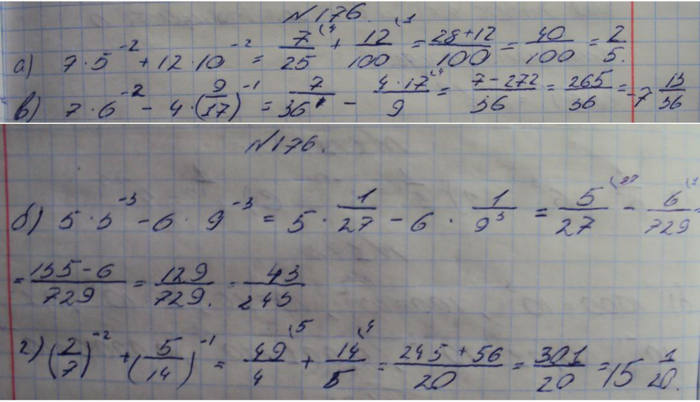 №176.
а) 7·5^-2 + 12·10^-2 = 7/25 (4 + 12/100 (1 = 28+12/100 = 40/100 = 2/5.
в) 7·6^-2 - 4·(9/17)^-1 = 7/36 - 4·17/9 (4 = 7-272/36 = 265/36 = -7 13/36
№176.
б) 5·3^-3 - 6·9^-3 = 5·1/27 - 6·1/9^3 = 5/27 (27 - 6/729 (1 =
= 135-6/729 = 129/729. = 43/243
г) (2/7)^-2 + (5/14)^-1 = 49/4 (5 + 14/5 (4 = 245+56/20 = 301/20 = 15 1/20.